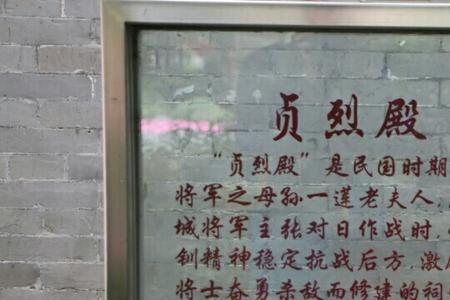 贞烈殿
“贞烈殿”是民国时期
将军之母孙一莲老夫人,
城将军主张对日作战时,
钏精神稳定抗战后方,激
将士奋勇杀敌而修建的祠